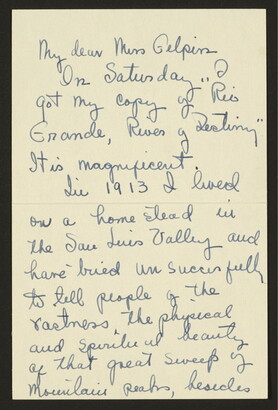 My dear Miss Gilpin
On Saturday I
got my copy of "Rio
Grande, River of Destiny"
It is magnificent.
In 1913 I lived
on a home stead in
the San Luis Valley and
have tried unsuccessfully
to tell people of the
vastness, the physical
and spiritual beauty
of that great sweep of
mountain peaks, besides